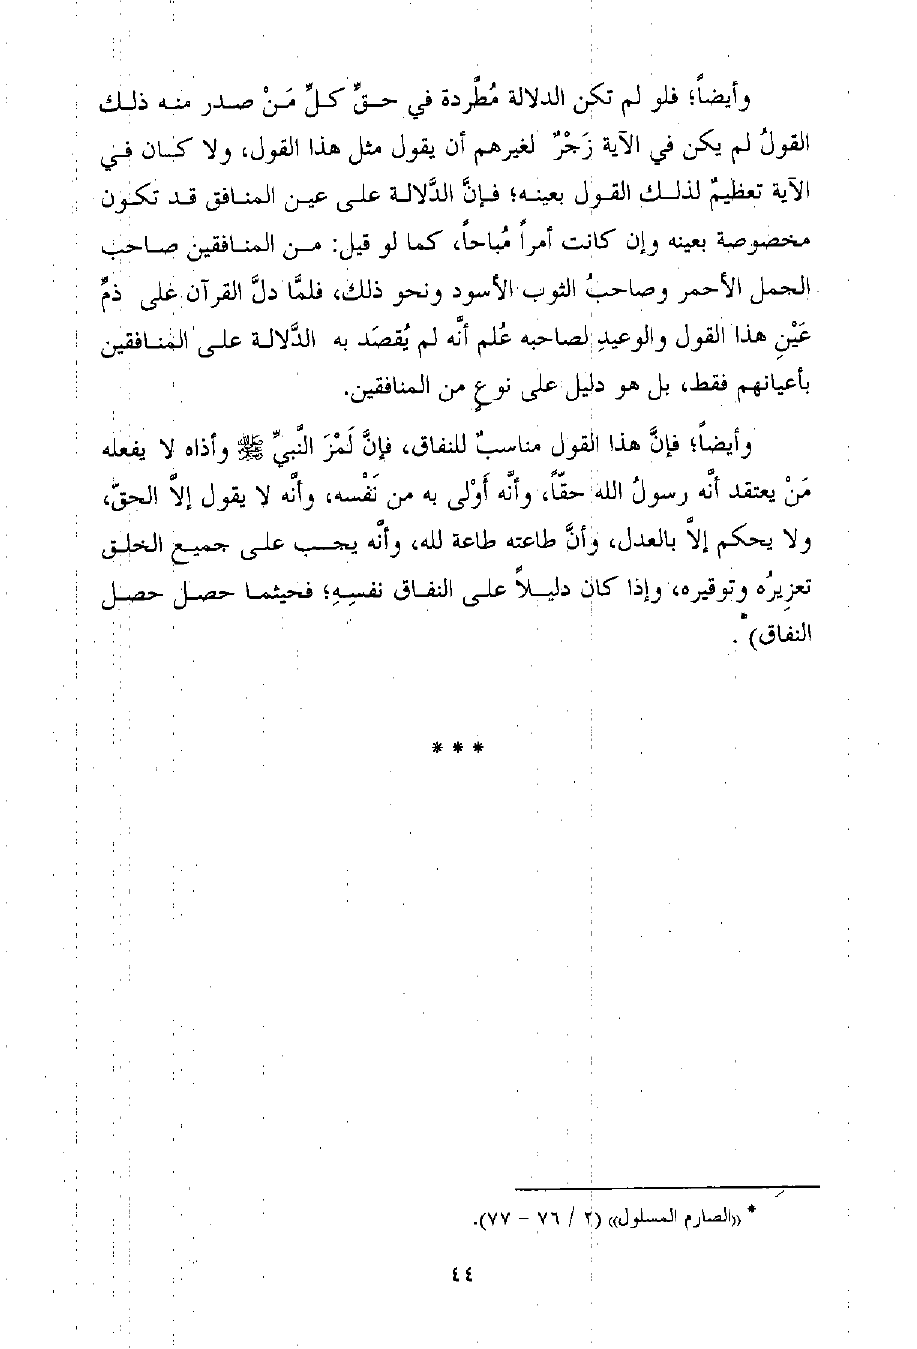 وأيضاً؛ فلو لم تكن الدلالة مُطَّردة في حقِّ كلِّ مَنْ صدر منه ذلك
القولُ لم يكن في الآية زَجْرٌ لغيرهم أن يقول مثل هذا القول، ولا كان في
الآية تعظيمٌ لذلك القول بعينه؛ فإنَّ الدَّلالة على عين المنافق قد تكون
مخصوصة بعينه وإن كانت أمراً مُباحاً، كما لو قيل: من المنافقين صاحب
الجمل الأحمر وصاحبُ الثوب الأسود ونحو ذلك، فلمَّا دلَّ القرآن على ذمِّ
عَيْنِ هذا القول والوعيدِ لصاحبه عُلم أنَّه لم يُقصَد به الدَّلالة على المنافقين
بأعيانهم فقط، بل هو دليل على نوعٍ من المنافقين.
وأيضاً؛ فإنَّ هذا القول مناسبٌ للنفاق، فإنَّ لَمْزَ النَّبيِّ ﷺ وأذاه لا يفعله
مَنْ يعتقد أنَّه رسولُ الله حقّاً، وأنَّه أَوْلى به من نَفْسه، وأنَّه لا يقول إلاَّ الحقّ،
ولا يحكم إلاَّ بالعدل، وأنَّ طاعته طاعة لله، وأنَّه يجب على جميع الخلق
تعزيرُه وتوقيره، وإذا كان دليلاً على النفاق نفسِهِ؛ فحيثما حصل حصل
النفاق)*.
* * *
* «الصارم المسلول» (٢ / ٧٦ - ٧٧).
٤٤